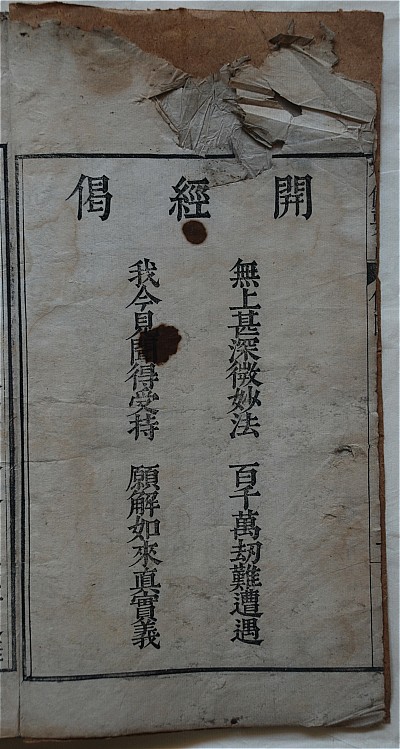 開經偈
無上甚深微妙法 百千萬刼難遭遇
我今見聞得受持 願解如來真實義